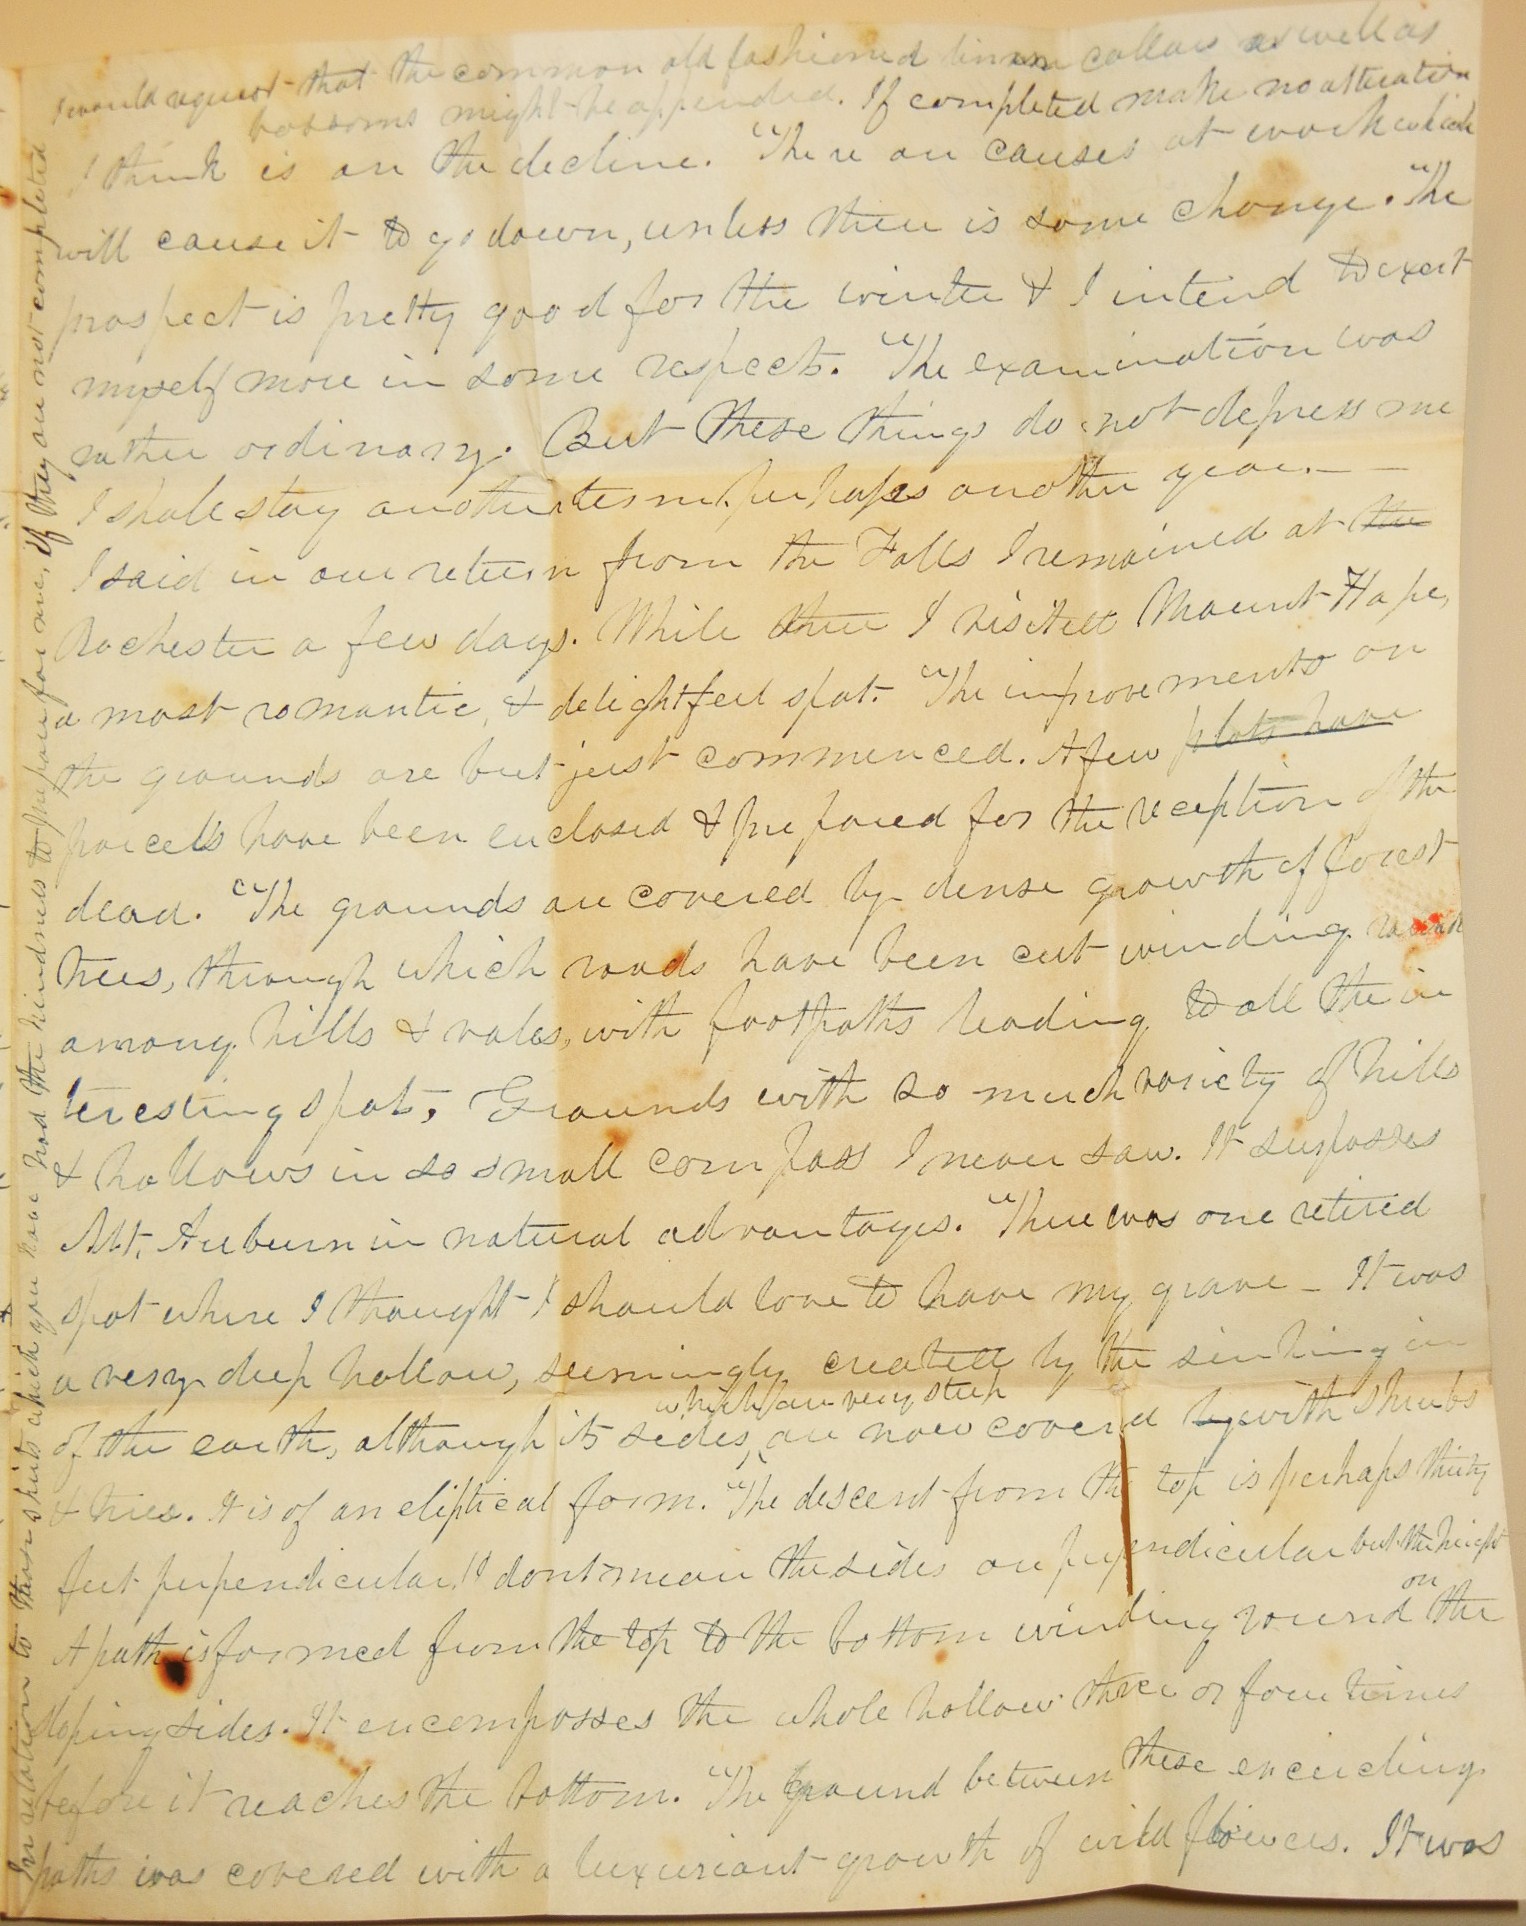 I would request that the common old fashioned linen collars as well as
bosoms might be appended. If completed make no alteration
I think is on the decline. There are causes at work which
will cause it to go down, unless there is some change. The
prospect is pretty good for the winter & I intend to exert
myself more in some respects. The examination was
rather ordinary. But these things do not depress me
I shall stay another term, perhaps another year. —
I said in our return from the Falls I remained at the
Rochester a few days. While there I visited Mount Hope,
a most romantic, & delightful spot. The improvements on
the grounds are but just commenced. A few plots have
parcels have been enclosed & prepared for the reception of the
dead. The grounds are covered by dense growth of forest
trees, through which roads have been cut winding round
among hills & vales, with footpaths leading to all the in
teresting spots. Grounds with so much variety of hills
& hollows in so small compass I never saw. It surpasses
Mt. Auburn in natural advantages. There was one retired
spot where I thought I should love to have my grave – It was
a very deep hollow, seemingly created by the sinking in
of the earth, although its sides, which are very steep are now covered by with shrubs
& trees. It is of an eliptical form. The descent from the top is perhaps thirty
feet perpendicular, I dont mean the sides are perpendicular but the height
A path is formed from the top to the bottom winding round on the
sloping sides. It encompasses the whole hollow three or four times
before it reaches the bottom. The ground between these encircling
paths was covered with a luxuriant growth of wild flowers. It was
In relation to those shirts which you have had the kindness to prepare for me, if they are not completed